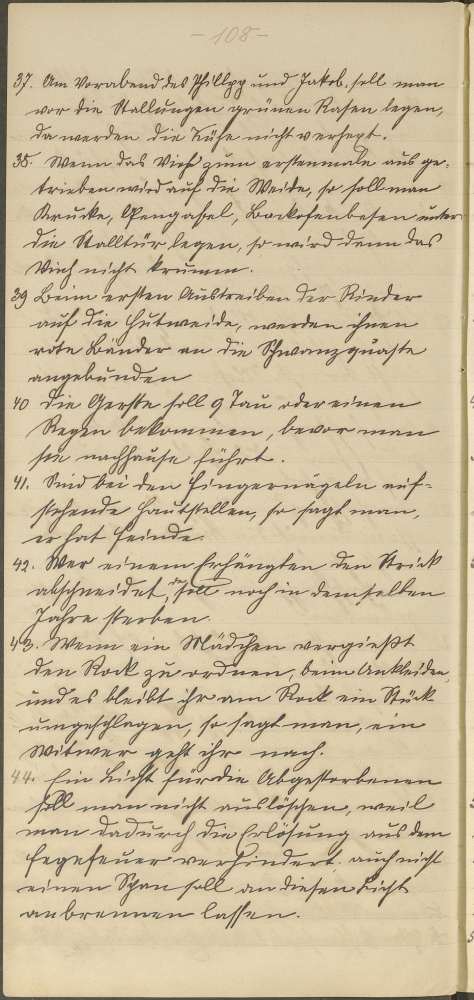 - 108 -
37. Am Vorabend des Phillpp und Jakob, soll man
vor die Stallungen grünen Rasen legen,
da werden die Kühe nicht verhext.
38. Wenn das Vieh zum erstenmale aus ge-
trieben wird auf die Weide, so soll man
Krucke, Ofengabel, Backofenbesen unter
die Stalltür legen, so wird dann das
Vieh nicht krumm.
39 Beim ersten Austreiben der Rinder
auf die Hutweide, werden ihnen
rote Bänder an die Schwanzquaste
angebunden
40 Die Gerste soll 9 Tau oder einen
Regen bekommen, bevor man
sie nachhause führt.
41. Sind bei den Fingernägeln auf-
stehende Hautstellen, so sagt man,
er hat Feinde.
42. Wer einem Erhängten den Strick
abschneidet, der soll noch in demselben
Jahre sterben.
43. Wenn ein Mädchen vergießt
den Rock zu ordnen, beim Ankleiden,
und es bleibt ihr am Rock ein Stück
umgeschlagen, so sagt man, ein
Witwer geht ihr nach.
44. Ein Licht für die Abgestorbenen
soll man nicht auslöschen, weil
man dadurch die Erlösung aus dem
Fegefeuer verhindert. auch nicht
einen Span soll an diesen Licht
anbrennen lassen.